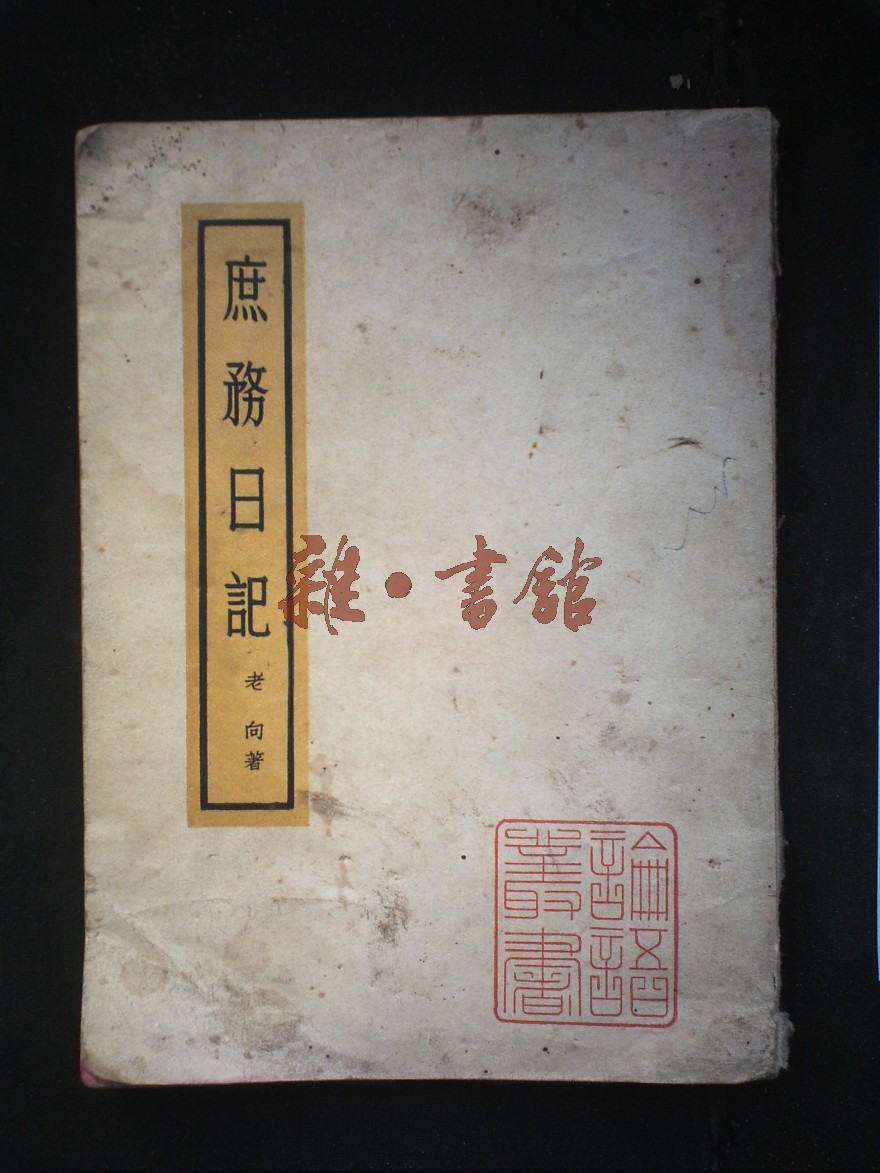 庶務日記
老向著
雜·書館
論語
叢書